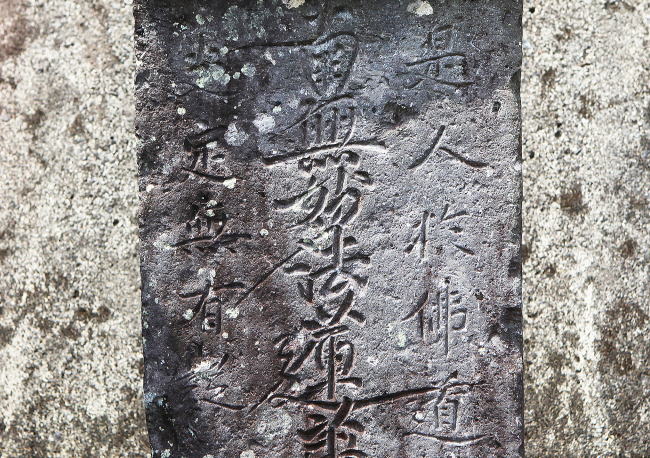 是人於佛道
南無妙法蓮華
決定無有疑